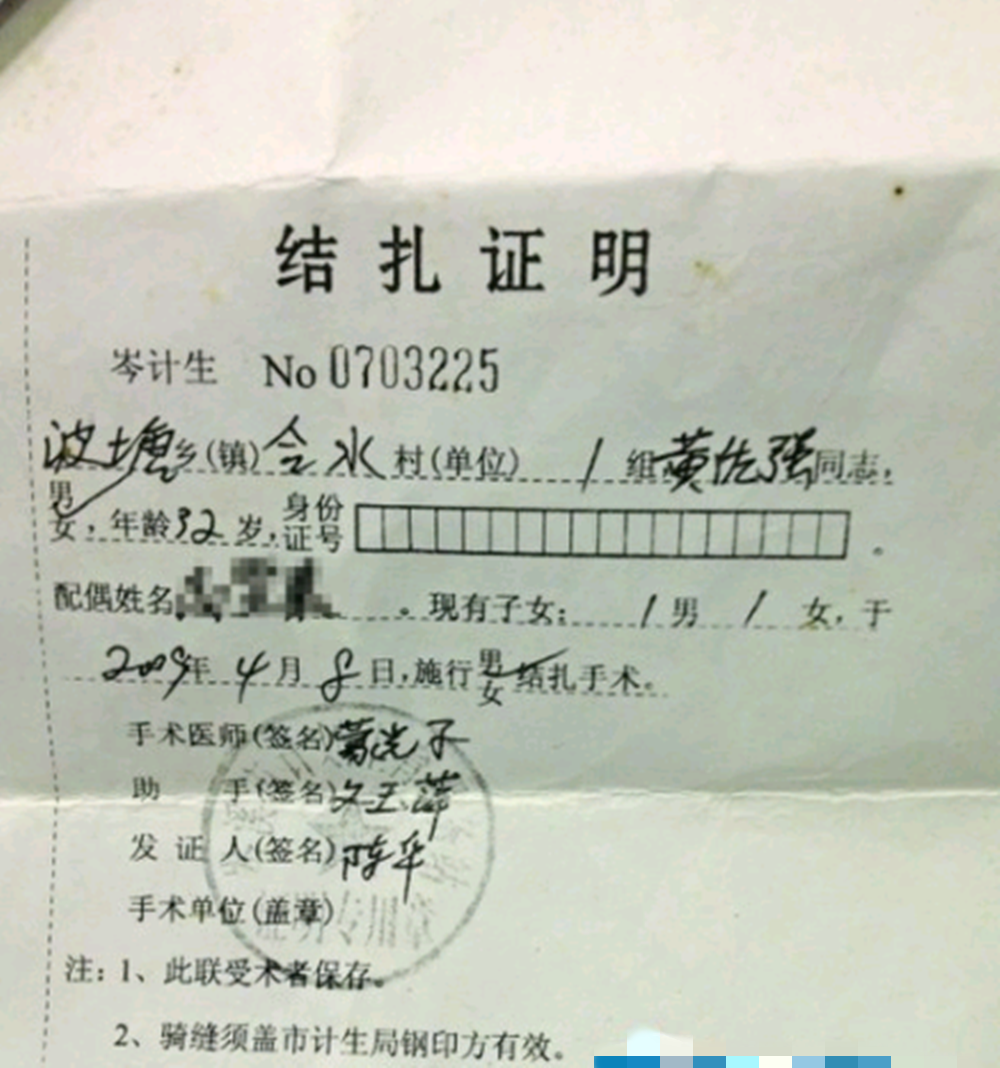 结扎证明
岑计生 No 0703225
波塘乡(镇) 令水村(单位) 1 组黄佐强同志，
男
女，年龄32岁，身份证号。
配偶姓名 。现有子女：1男 1 女，于
2009年4月8日，施行男女结扎手术。
手术医师(签名)
助 手(签名)文玉萍
发证人(签名)陈华
手术单位(盖章)
证明专用章
注：1、此联受术者保存。
2、骑缝须盖市计生局钢印方有效。